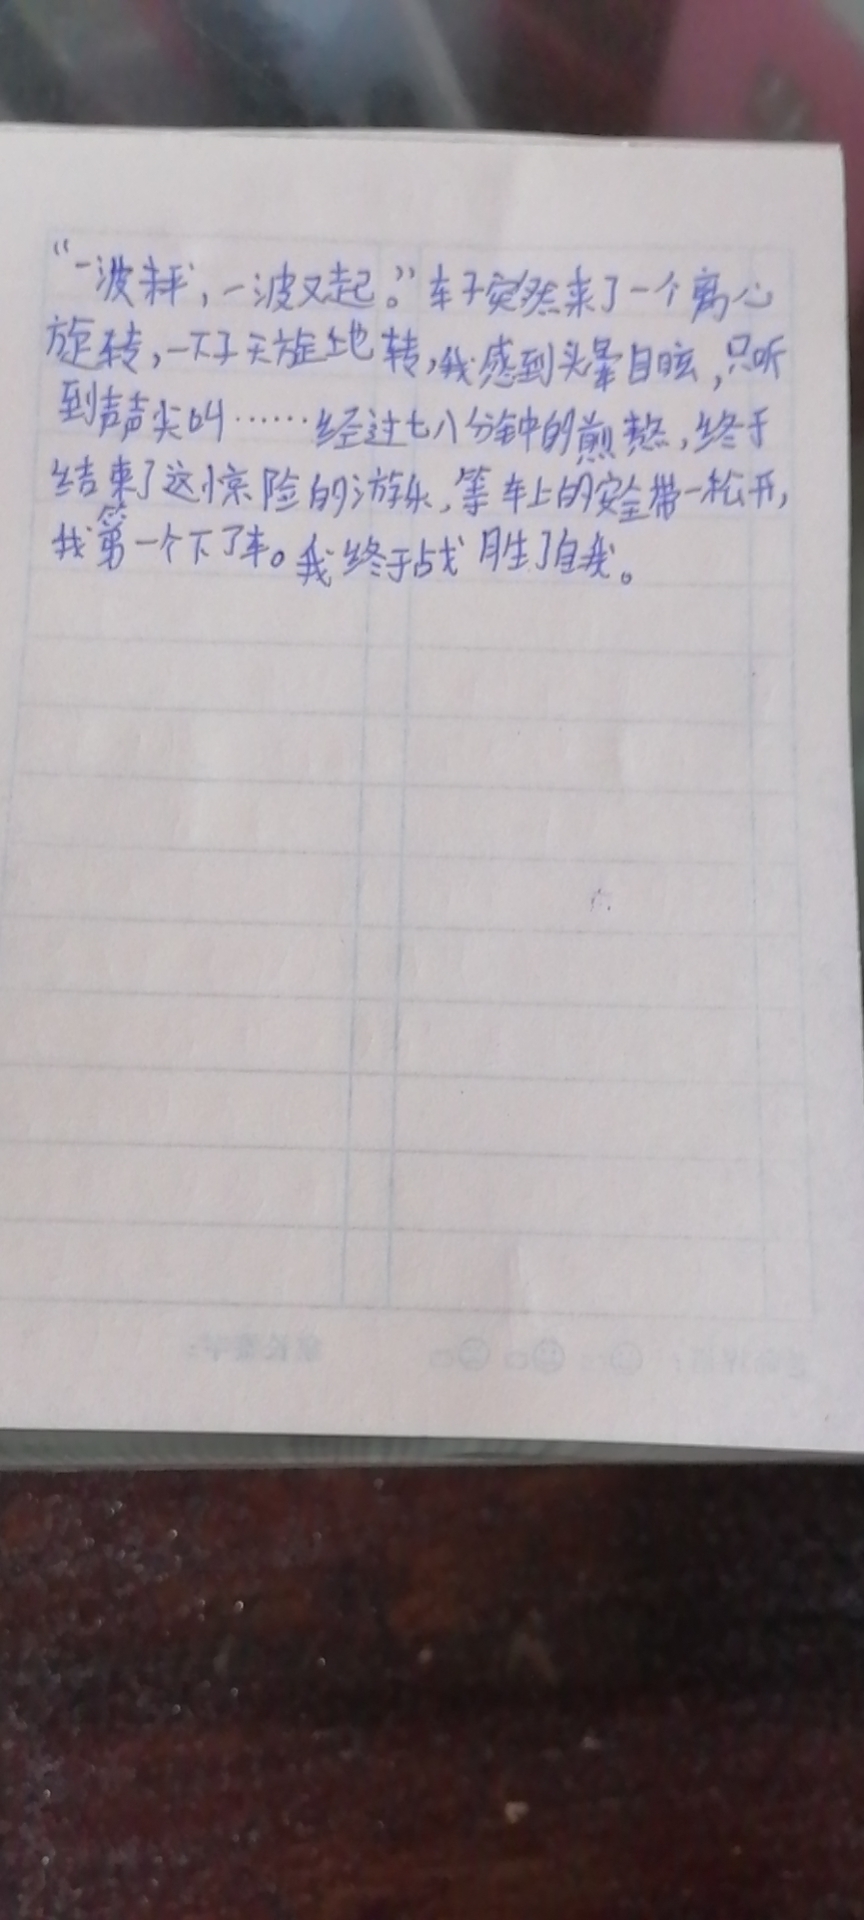 “一波未平，一波又起。”车子突然来了一个离心
旋转，一下子天旋地转，我感到头晕目眩，只听
到声声尖叫……经过七八分钟的煎熬，终于
结束了这惊险的游乐，等车上的安全带一松开，
我第一个下了车。我终于战胜了自我。